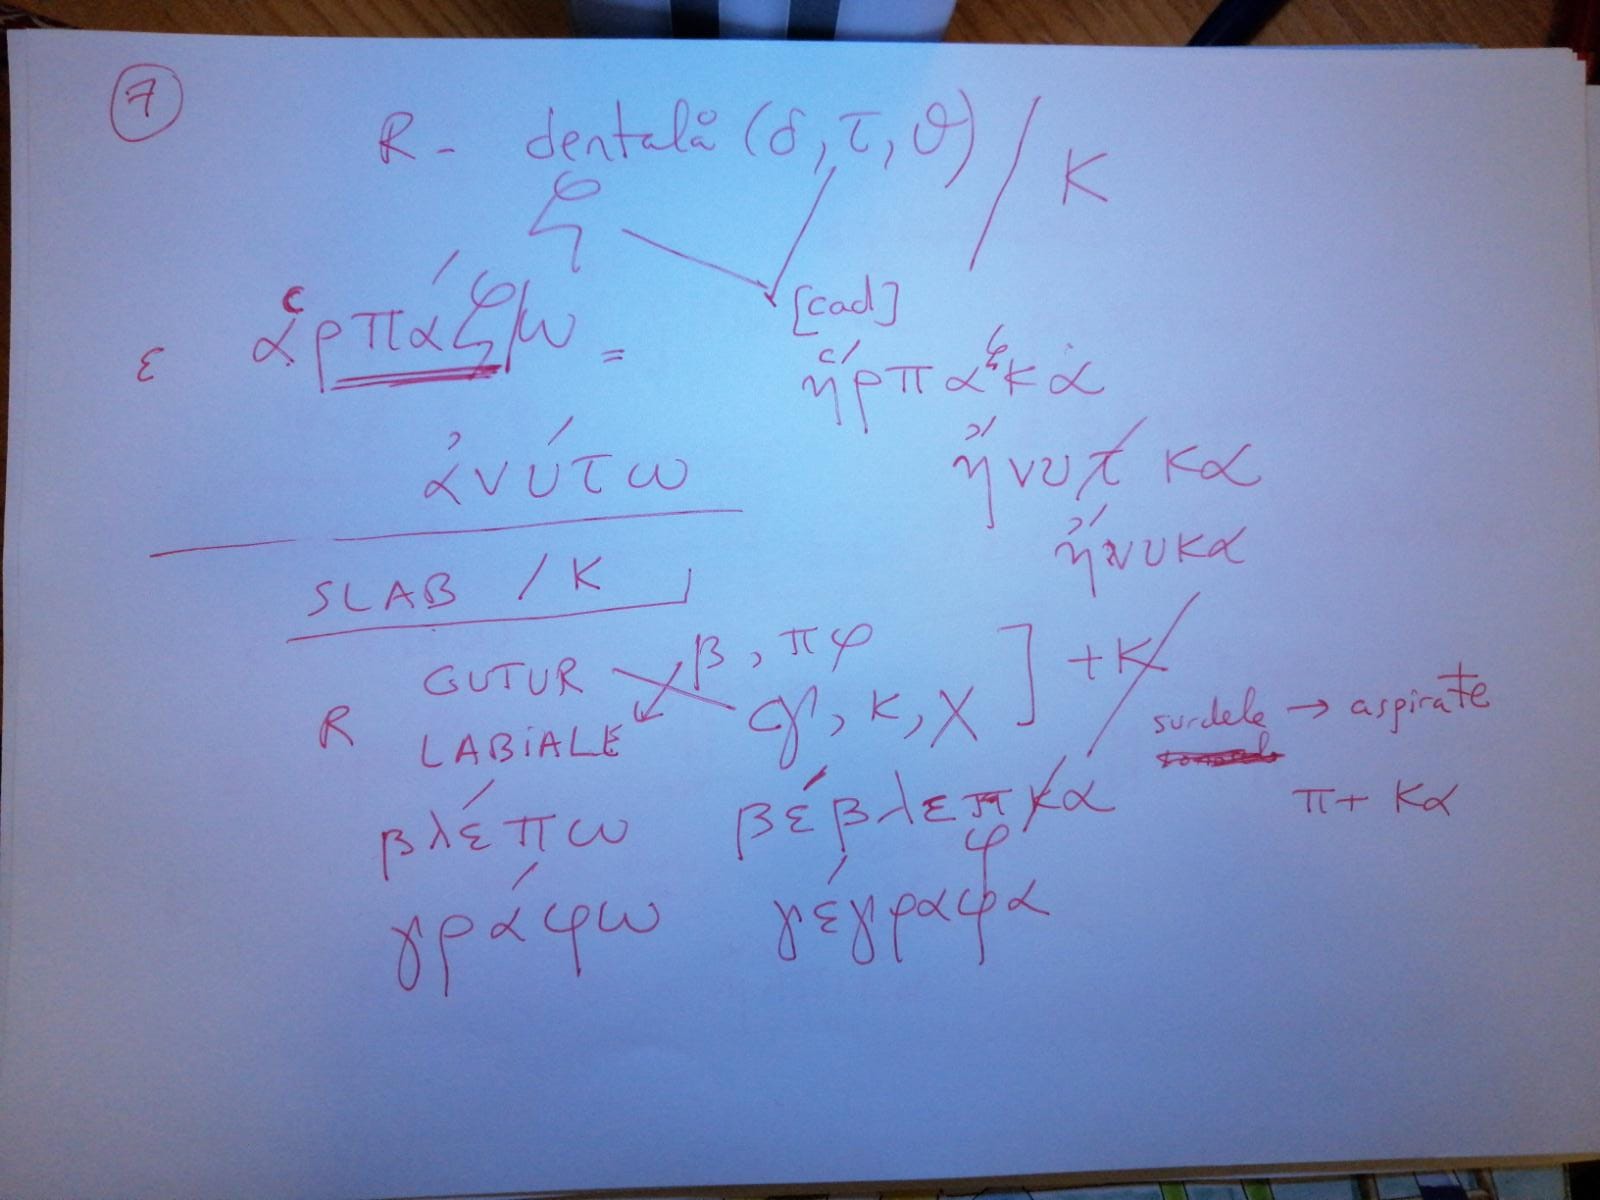 7
R - dentală (δ, τ, θ) / K
ζ
[cad]
ε ἁρπάζ/ω = ἥρπαζκα
ἀνύτω ἤνυτ κα
ἤνυκα
SLAB / K
GUTUR β, π φ
R LABIALE γ, κ, χ ] + K
surdele → aspirate
βλέπω βέβλεπκα π + κα
φ
γράφω γέγραφα